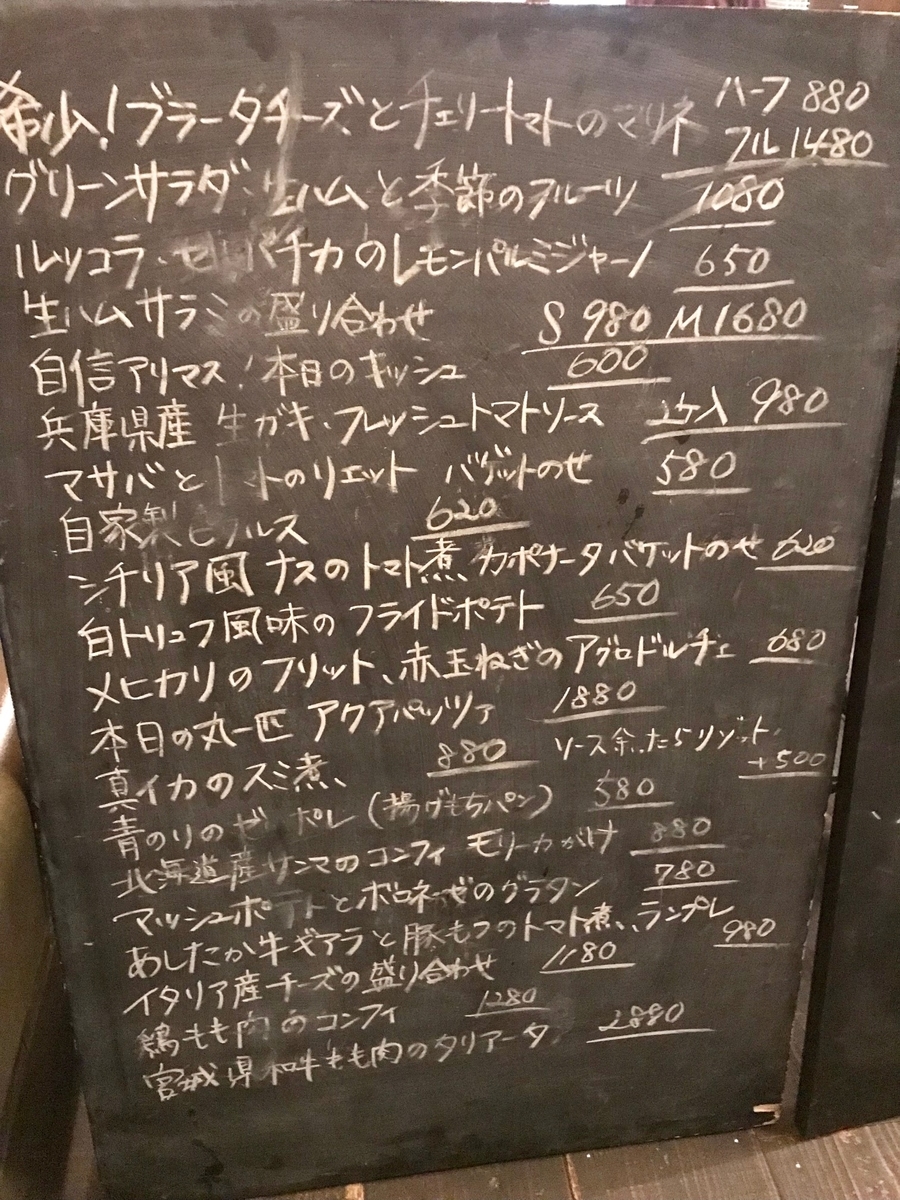 希少!ブラータチーズとチェリートマトのマリネ ハーフ 880
フル 1480
グリーンサラダ、生ハムと季節のフルーツ 1080
ルッコラ・セルバチカのレモンパルミジャーノ 650
生ハムサラミの盛り合わせ S 980 M 1680
自信アリマス!本日のキッシュ 600
兵庫県産 生ガキ・フレッシュトマトソース 2ケ入 980
マサバとトマトのリエット バゲットのせ 580
自家製ピクルス 620
シチリア風 ナスのトマト煮 カポナータバケットのせ 620
白トリュフ風味のフライドポテト 650
メヒカリのフリット、赤玉ねぎのアグロドルチェ 680
本日の丸一匹 アクアパッツァ 1880
真イカのスミ煮 880 ソース余ったらリゾット +500
青のりのゼッポレ(揚げもちパン) 580
北海道産サンマのコンフィ モリーカがけ 880
マッシュポテトとボロネーゼのグラタン 780
あしたか牛ギアラと豚もつのトマト煮、ランプレ 980
イタリア産チーズの盛り合わせ 1180
鶏もも肉のコンフィ 1280
宮城県和牛もも肉のタリアータ 2880